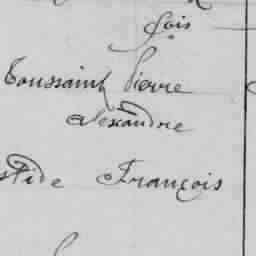 fois
Toussaint Pierre
Alexandre
stide François